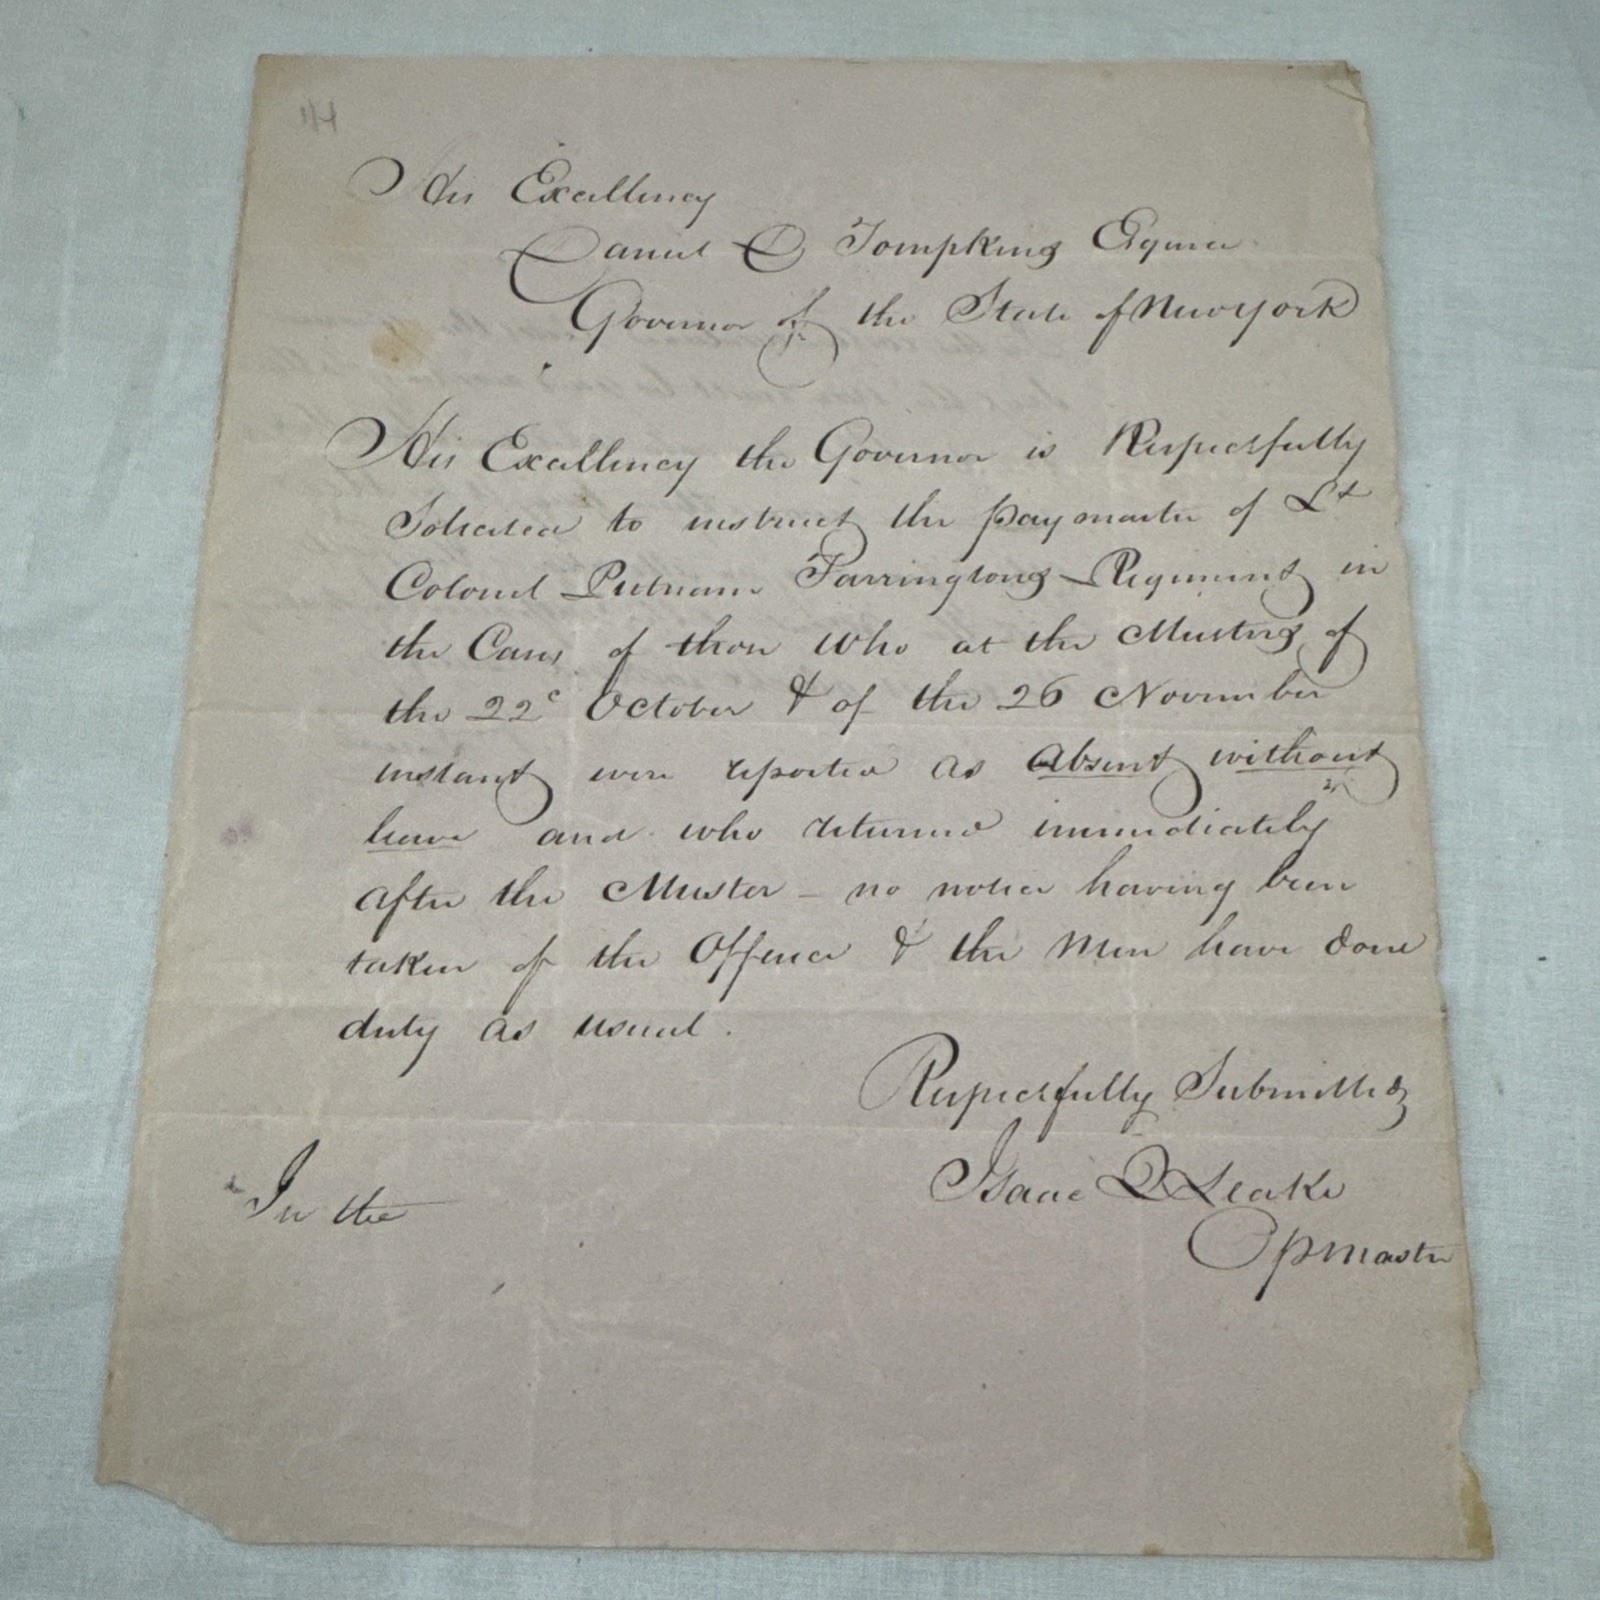 His Excellency
Daniel D Tompkins Esquire
Governor of the State of New York
His Excellency the Governor is Respectfully
Solicited to instruct the paymaster of Lt
Colonel Putnam Farringtons Regiment in
the Cases of those who at the Musters of
the 22d October & of the 26 November
instant were reported as absent without
leave and who returned immediately
after the Muster - no notice having been
taken of the Offence & the Men have done
duty as usual.
Respectfully Submitted
Isaac Q Leake
pmaster
In the